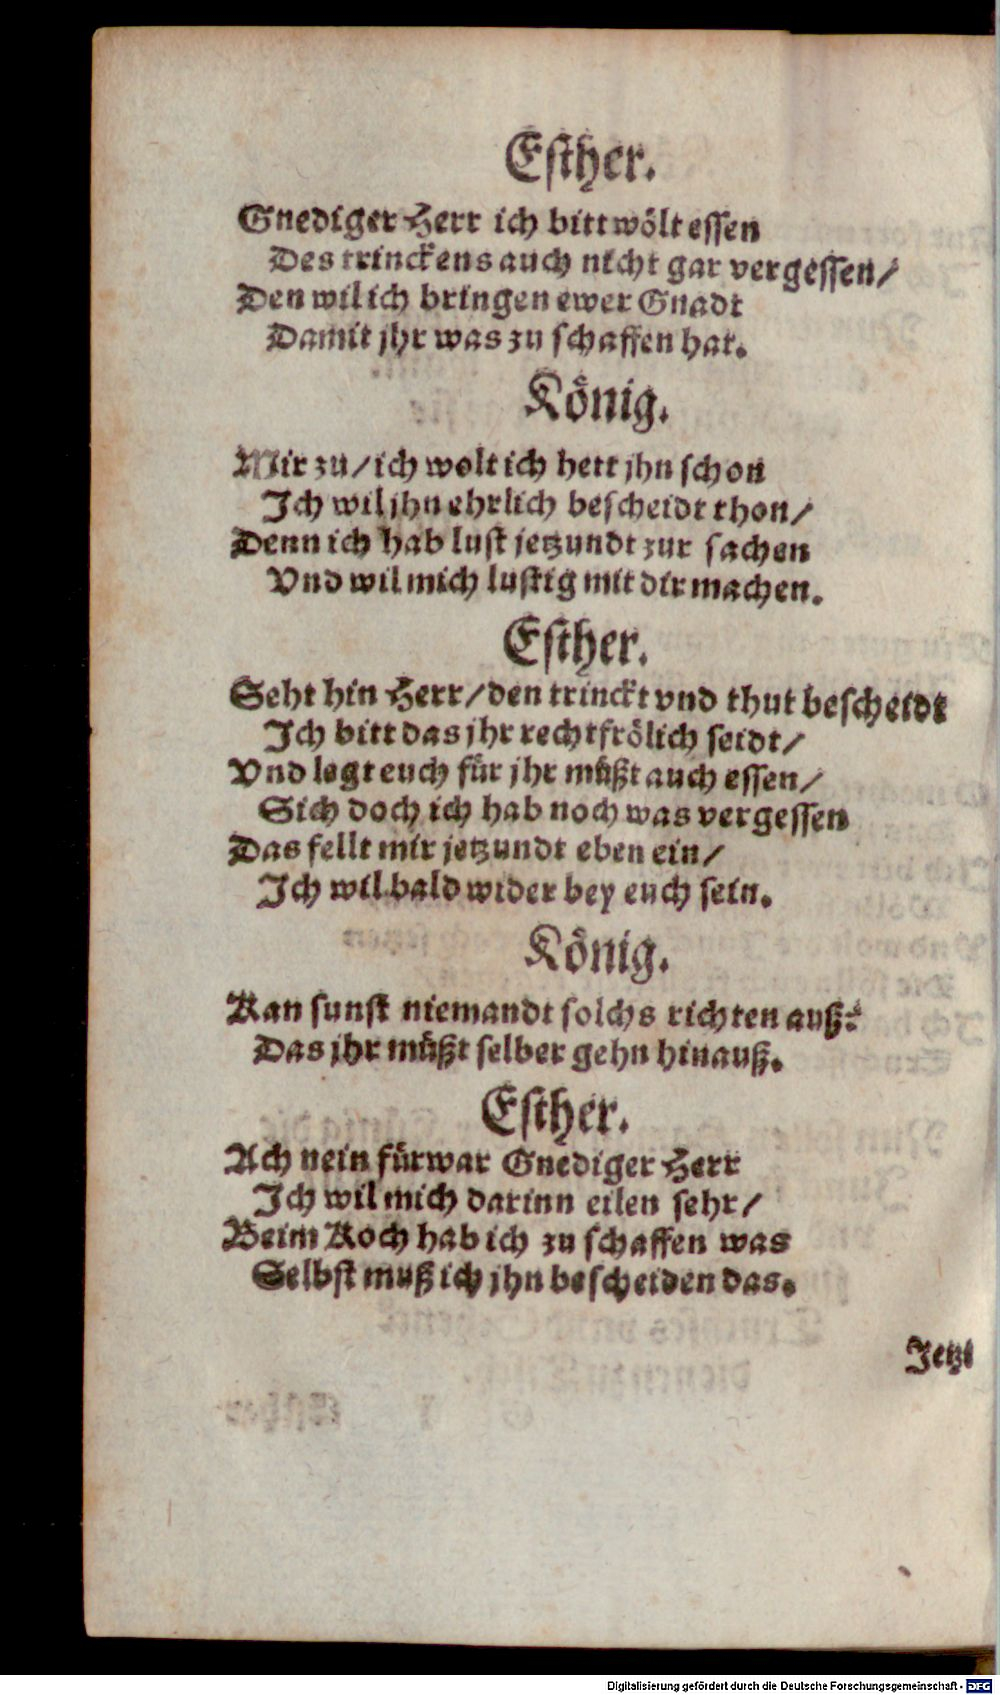 Esther.
Gnediger Herr ich bitt wölt essen
Des trinckens auch nicht gar vergessen/
Den wil ich bringen ewer Gnadt
Damit jhr was zu schaffen hat.
König.
Mir zu/ ich wolt ich hett jhn schon
Ich wil jhn ehrlich bescheidt thon/
Denn ich hab lust jetzundt zur sachen
Vnd wil mich lustig mit dir machen.
Esther.
Seht hin Herr/ den trinckt vnd thut bescheidt
Ich bitt das jhr recht frölich seidt/
Vnd legt euch für jhr müßt auch essen/
Sich doch ich hab noch was vergessen
Das fellt mir jetzundt eben ein/
Ich wil bald wider bey euch sein.
König.
Kan sunst niemandt solchs richten auß?
Das jhr müßt selber gehn hinauß.
Esther.
Ach nein fürwar Gnediger Herr
Ich wil mich darinn eilen sehr/
Beim Koch hab ich zu schaffen was
Selbst muß ich jhn bescheiden das.
Jetzt
Digitalisierung gefördert durch die Deutsche Forschungsgemeinschaft - DFG